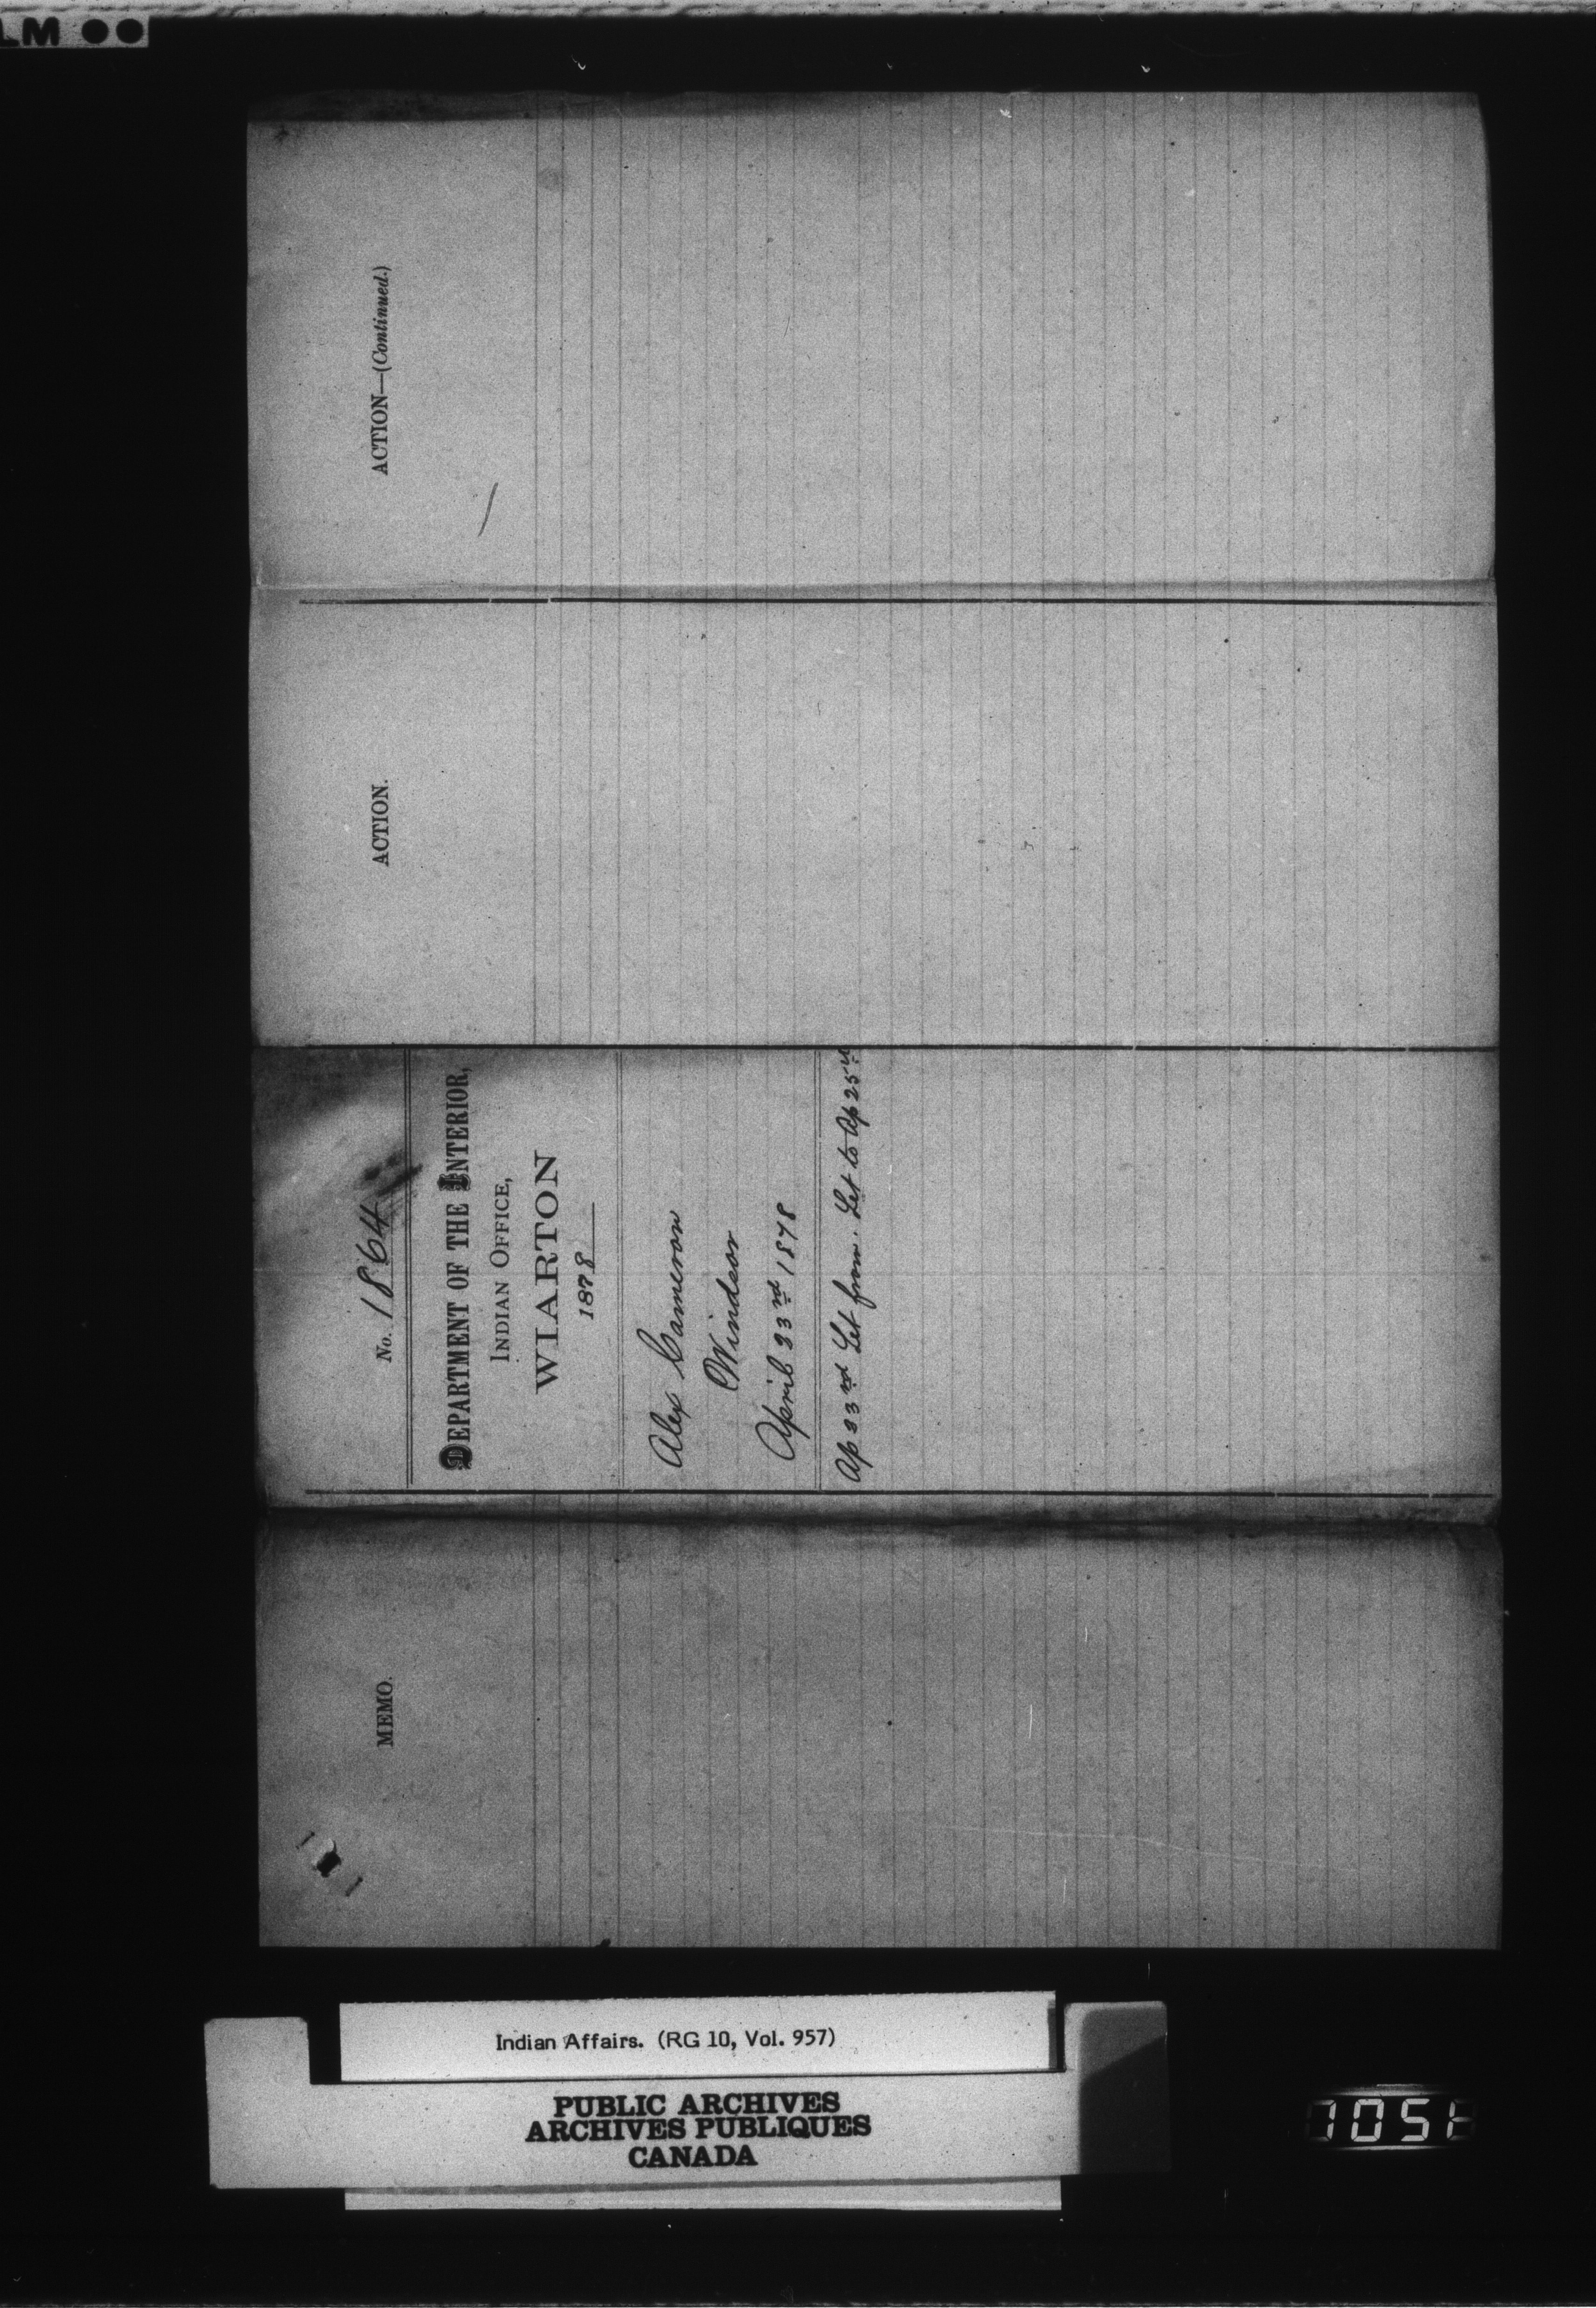 LM
MEMO.
No. 1864
DEPARTMENT OF THE INTERIOR,
INDIAN OFFICE,
WIARTON
1878
Alex Cameron
Windsor
April 23rd 1878
Ap 23rd Let from. Let to Ap 25th
ACTION.
ACTION—(Continued.)
Indian Affairs. (RG 10, Vol. 957)
PUBLIC ARCHIVES
ARCHIVES PUBLIQUES
CANADA